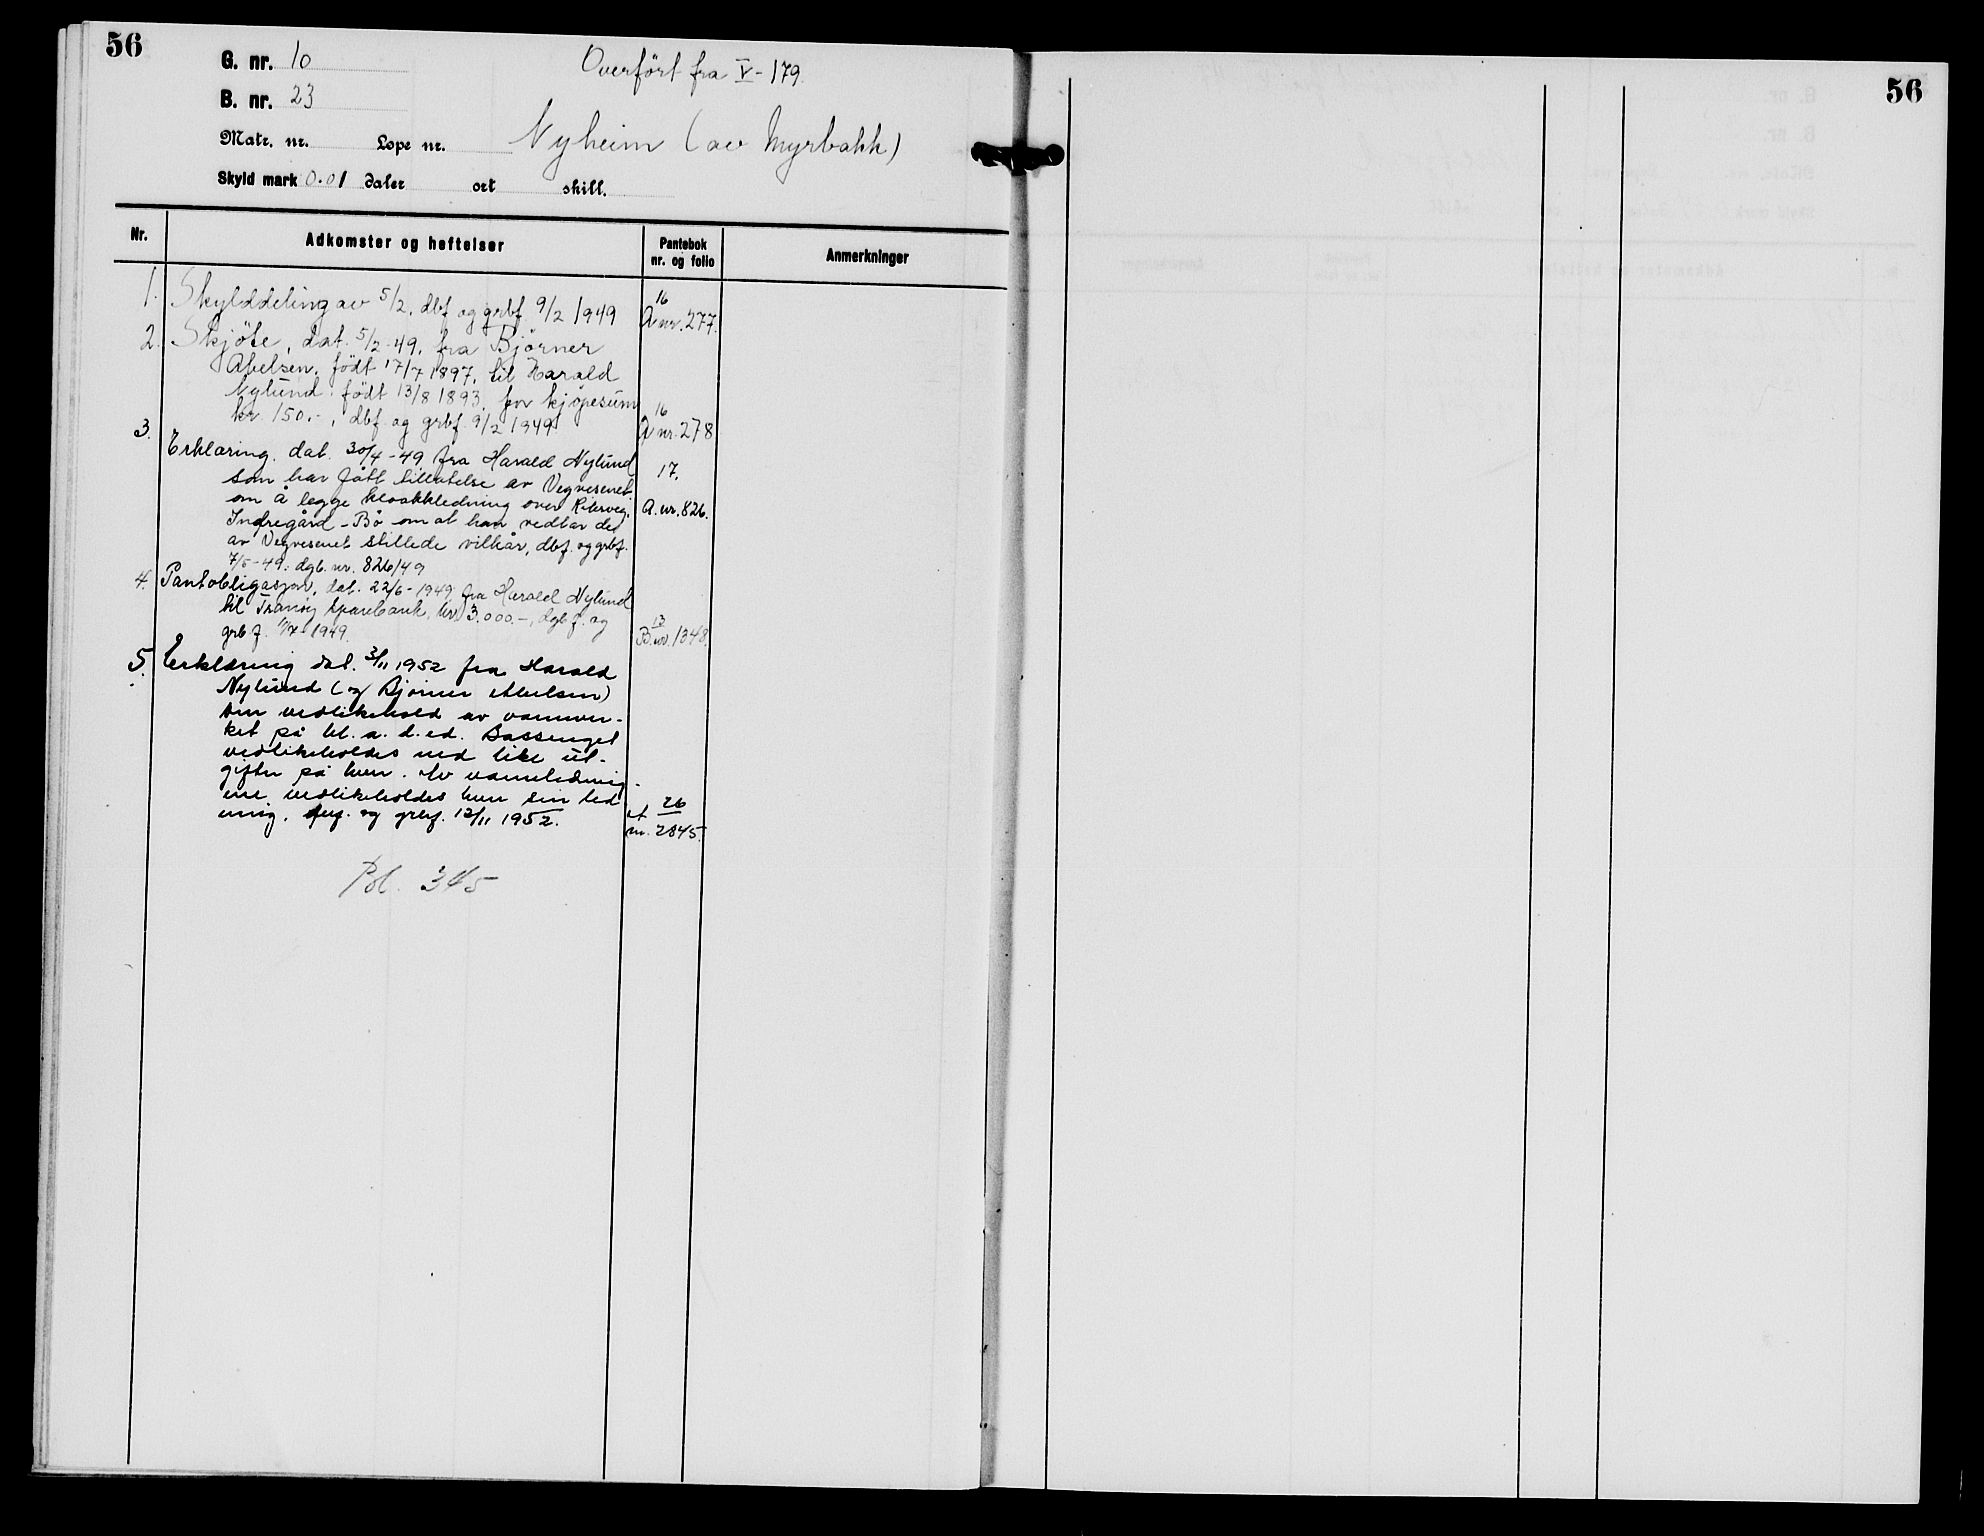 56
G. nr. 10
Overfört fra V - 179.
B. nr. 23
Matr. nr. Løpe nr. Nyheim (av Myrbakk)
Skyld mark 0.01 daler ort skill.
Nr. Adkomster og heftelser Pantebok nr. og folio Anmerkninger
1. Skylddeling av 5/2, dbf og grbf. 9/2 1949 16 A nr. 277.
2. Skjöte, dat. 5/2-49, fra Björner
Abelsen, født 17/7 1897, til Harald
Nylund, født 13/8 1893, for kjøpesum
kr. 150.-, dbf. og grbf. 9/2 1949 16 A nr. 278
3. Erklæring, dat. 30/4-49 fra Harald Nylund
som har fått tillatelse av Vegvesenet 17.
om å legge kloakkledning over Riksveg,
Indregård - Bö om at han vedtar de A. nr. 826.
av Vegvesenet stillede vilkår, dbf. og grbf.
7/5-49. dgb. nr. 826/49
4. Pantobligasjon, dat. 22/6-1949 fra Harald Nylund
til Tranöy Sparebank, kr. 3.000.-, dgbf. og
grbf. 1949. 13 B. nr. 1348.
5. Erklæring dat. 3/11 1952 fra Harald
Nylund (og Bjørner Abelsen)
om vedlikehold av vannver-
ket på bl. a. d. ed. Bassenget
vedlikeholdes med like ut-
gifter på hver. Av vannledning-
ene vedlikeholdes hver sin led
ning. og grbf. 12/11 1952. A 26 nr. 2845.
Bl. 345
56